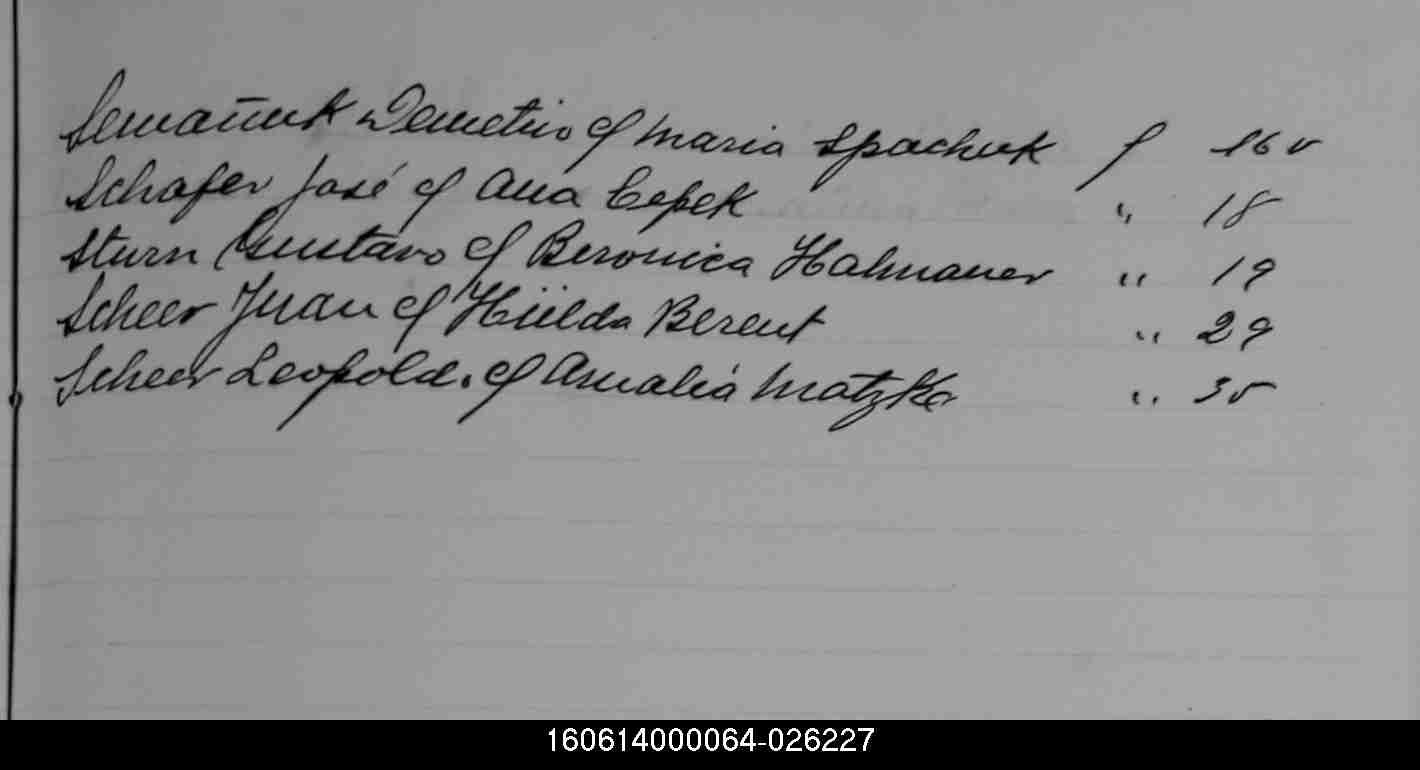 Semañuk Demetrio c/ Maria Spachuk f 16 v
Schafer José c/ Ana Cepek " 18
Sturn Gustavo c/ Beronica Halmauer " 19
Scheer Juan c/ Hüilda Berent " 29
Scheer Leopold. c/ Amalia Matzke " 35
160614000064-026227